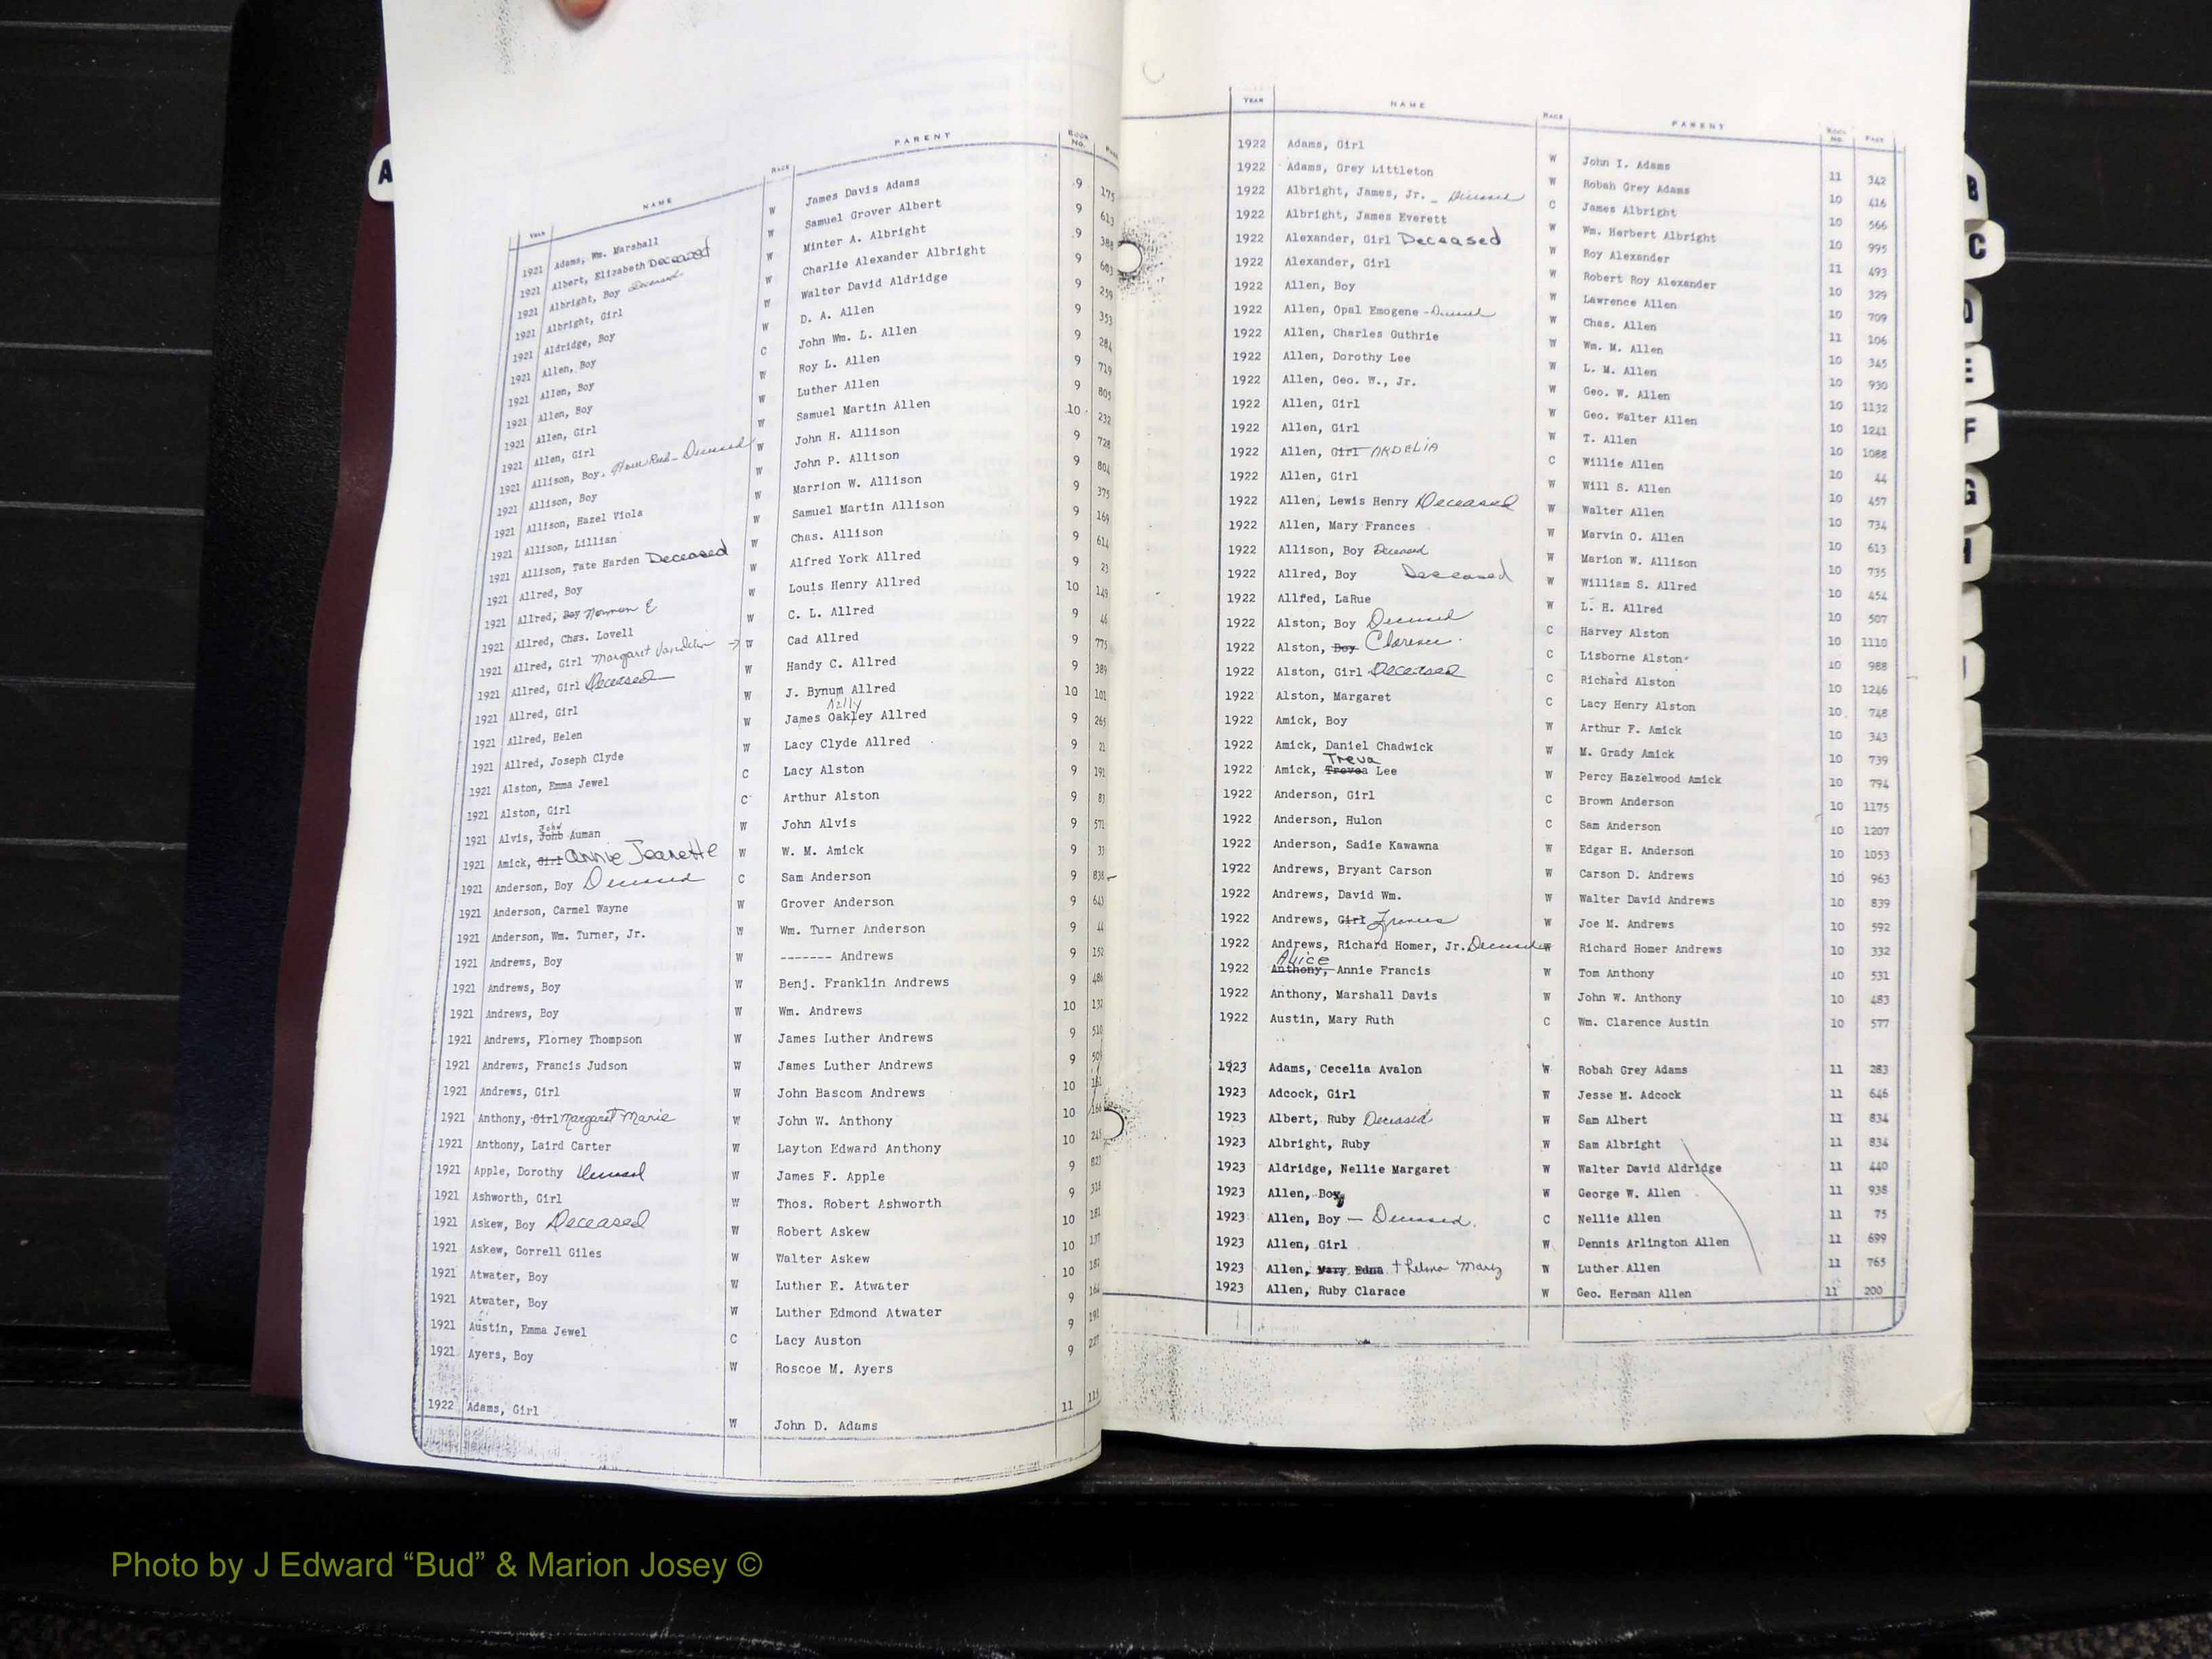 A
YEAR NAME RACE PARENT BOOK NO.
1921 Adams, Wm. Marshall W James Davis Adams 9 175
1921 Albert, Elizabeth Deceased W Samuel Grover Albert 9 613
1921 Albright, Boy Deceased W Minter A. Albright 9 388
1921 Albright, Girl W Charlie Alexander Albright 9 603
1921 Aldridge, Boy W Walter David Aldridge 9 259
1921 Allen, Boy W D. A. Allen 9 353
1921 Allen, Boy C John Wm. L. Allen 9 284
1921 Allen, Boy W Roy L. Allen 9 719
1921 Allen, Girl W Luther Allen 9 805
1921 Allen, Girl W Samuel Martin Allen 10 232
1921 Allison, Boy. Deceased W John H. Allison 9 728
1921 Allison, Boy W John P. Allison 9 804
1921 Allison, Hazel Viola W Marrion W. Allison 9 375
1921 Allison, Lillian W Samuel Martin Allison 9 169
1921 Allison, Tate Harden Deceased W Chas. Allison 9 614
1921 Allred, Boy W Alfred York Allred 9 23
1921 Allred, Boy Norman E W Louis Henry Allred 10 149
1921 Allred, Chas. Lovell W C. L. Allred 9 46
1921 Allred, Girl Margaret W Cad Allred 9 775
1921 Allred, Girl Deceased W Handy C. Allred 9 389
1921 Allred, Girl W J. Bynum Allred 10 101
1921 Allred, Helen W James Oakley Allred 9 265
1921 Allred, Joseph Clyde W Lacy Clyde Allred 9 21
1921 Alston, Emma Jewel C Lacy Alston 9 191
1921 Alston, Girl C Arthur Alston 9 83
1921 Alvis, John Auman W John Alvis 9 571
1921 Amick, Girl Annie Jeanette W W. M. Amick 9 33
1921 Anderson, Boy Deceased C Sam Anderson 9 838
1921 Anderson, Carmel Wayne W Grover Anderson 9 643
1921 Anderson, Wm. Turner, Jr. W Wm. Turner Anderson 9 44
1921 Andrews, Boy W ------- Andrews 9 152
1921 Andrews, Boy W Benj. Franklin Andrews 9 486
1921 Andrews, Boy W Wm. Andrews 10 132
1921 Andrews, Florney Thompson W James Luther Andrews 9 510
1921 Andrews, Francis Judson W James Luther Andrews 9
1921 Andrews, Girl W John Bascom Andrews 10
1921 Anthony, Girl Margaret Marie W John W. Anthony 10
1921 Anthony, Laird Carter W Layton Edward Anthony 10
1921 Apple, Dorothy Deceased W James F. Apple 9
1921 Ashworth, Girl W Thos. Robert Ashworth 9
1921 Askew, Boy Deceased W Robert Askew 10
1921 Askew, Gorrell Giles W Walter Askew 10
1921 Atwater, Boy W Luther E. Atwater 10
1921 Atwater, Boy W Luther Edmond Atwater 9
1921 Austin, Emma Jewel C Lacy Auston 9
1921 Ayers, Boy W Roscoe M. Ayers 9
1922 Adams, Girl W John D. Adams 11
YEAR NAME RACE PARENT BOOK NO. PAGE
1922 Adams, Girl W John I. Adams 11 342
1922 Adams, Grey Littleton W Robah Grey Adams 10 416
1922 Albright, James, Jr. - Deceased C James Albright 10 566
1922 Albright, James Everett W Wm. Herbert Albright 10 995
1922 Alexander, Girl Deceased W Roy Alexander 11 493
1922 Alexander, Girl W Robert Roy Alexander 10 329
1922 Allen, Boy W Lawrence Allen 10 709
1922 Allen, Opal Emogene - Deceased W Chas. Allen 11 106
1922 Allen, Charles Guthrie W Wm. M. Allen 10 345
1922 Allen, Dorothy Lee W L. M. Allen 10 930
1922 Allen, Geo. W., Jr. W Geo. W. Allen 10 1132
1922 Allen, Girl W Geo. Walter Allen 10 1241
1922 Allen, Girl W T. Allen 10 1088
1922 Allen, Girl ARDELIA C Willie Allen 10 44
1922 Allen, Girl W Will S. Allen 10 457
1922 Allen, Lewis Henry Deceased W Walter Allen 10 734
1922 Allen, Mary Frances W Marvin O. Allen 10 613
1922 Allison, Boy Deceased W Marion W. Allison 10 735
1922 Allred, Boy Deceased W William S. Allred 10 454
1922 Allfed, LaRue W L. H. Allred 10 507
1922 Alston, Boy Deceased C Harvey Alston 10 1110
1922 Alston, Boy Clarence. C Lisborne Alston 10 988
1922 Alston, Girl Deceased C Richard Alston 10 1246
1922 Alston, Margaret C Lacy Henry Alston 10 748
1922 Amick, Boy W Arthur F. Amick 10 343
1922 Amick, Daniel Chadwick W M. Grady Amick 10 739
1922 Amick, Trevea Treva Lee W Percy Hazelwood Amick 10 794
1922 Anderson, Girl C Brown Anderson 10 1175
1922 Anderson, Hulon C Sam Anderson 10 1207
1922 Anderson, Sadie Kawawna W Edgar H. Anderson 10 1053
1922 Andrews, Bryant Carson W Carson D. Andrews 10 963
1922 Andrews, David Wm. W Walter David Andrews 10 839
1922 Andrews, Girl Frances W Joe M. Andrews 10 592
1922 Andrews, Richard Homer, Jr. Deceased W Richard Homer Andrews 10 332
1922 Anthony, Alice Annie Francis W Tom Anthony 10 531
1922 Anthony, Marshall Davis W John W. Anthony 10 483
1922 Austin, Mary Ruth C Wm. Clarence Austin 10 577
1923 Adams, Cecelia Avalon W Robah Grey Adams 11 283
1923 Adcock, Girl W Jesse M. Adcock 11 646
1923 Albert, Ruby Deceased W Sam Albert 11 834
1923 Albright, Ruby W Sam Albright 11 834
1923 Aldridge, Nellie Margaret W Walter David Aldridge 11 440
1923 Allen, Boy W George W. Allen 11 938
1923 Allen, Boy — Deceased. C Nellie Allen 11 75
1923 Allen, Girl W Dennis Arlington Allen 11 699
1923 Allen, Mary Edna Thelma Mary W Luther Allen 11 765
1923 Allen, Ruby Clarace W Geo. Herman Allen 11 200
B
C
D
E
F
G
H
Photo by J Edward “Bud” & Marion Josey ©